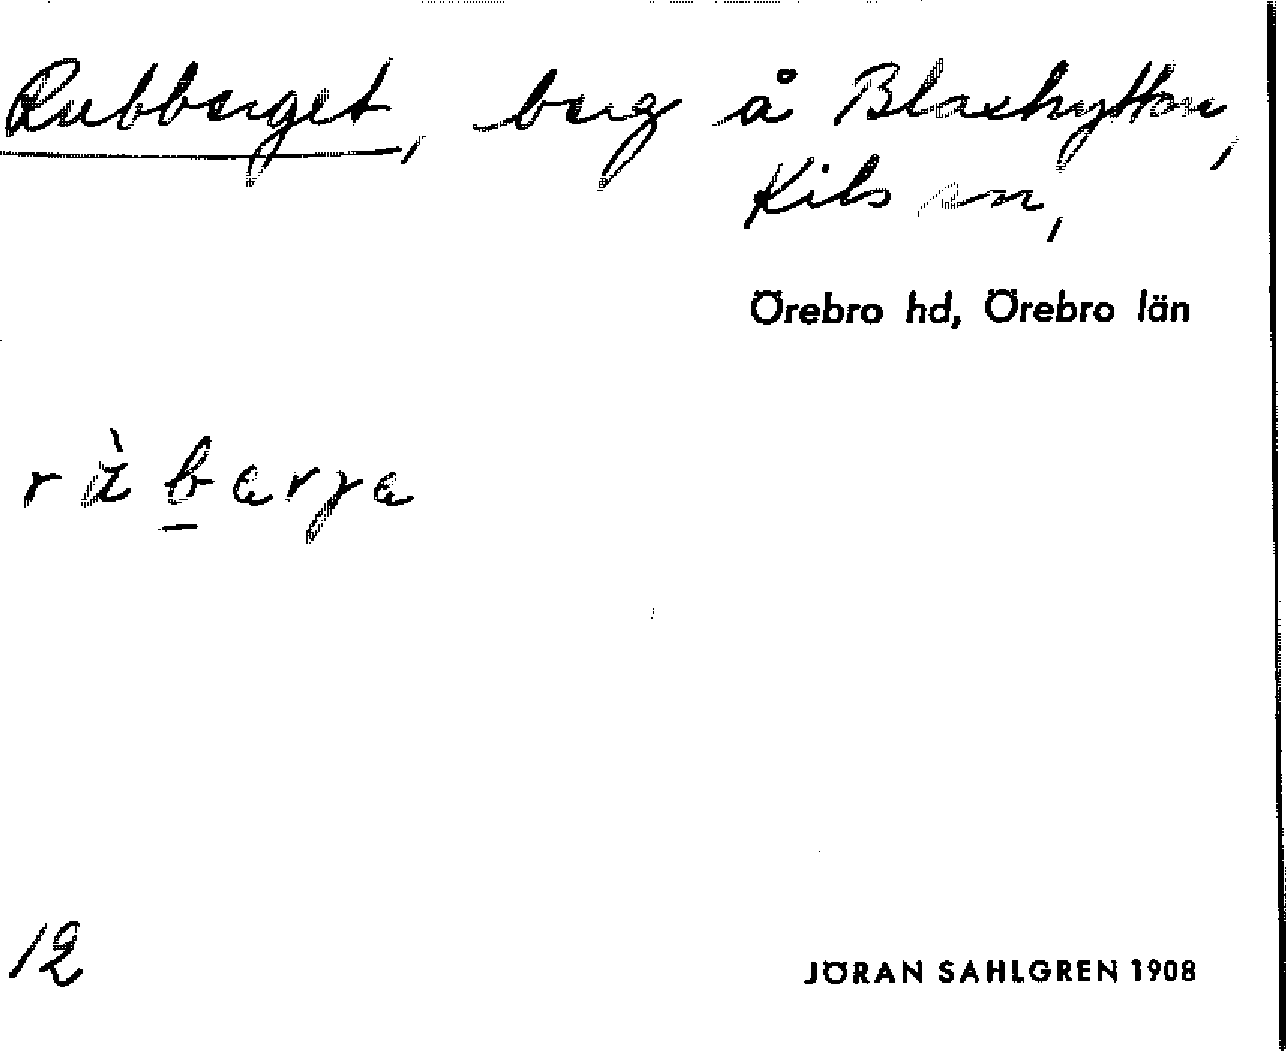 Rubberget, berg å Blackhyttan,
Kils sn,
Örebro hd, Örebro län
12
JÖRAN SAHLGREN 1908